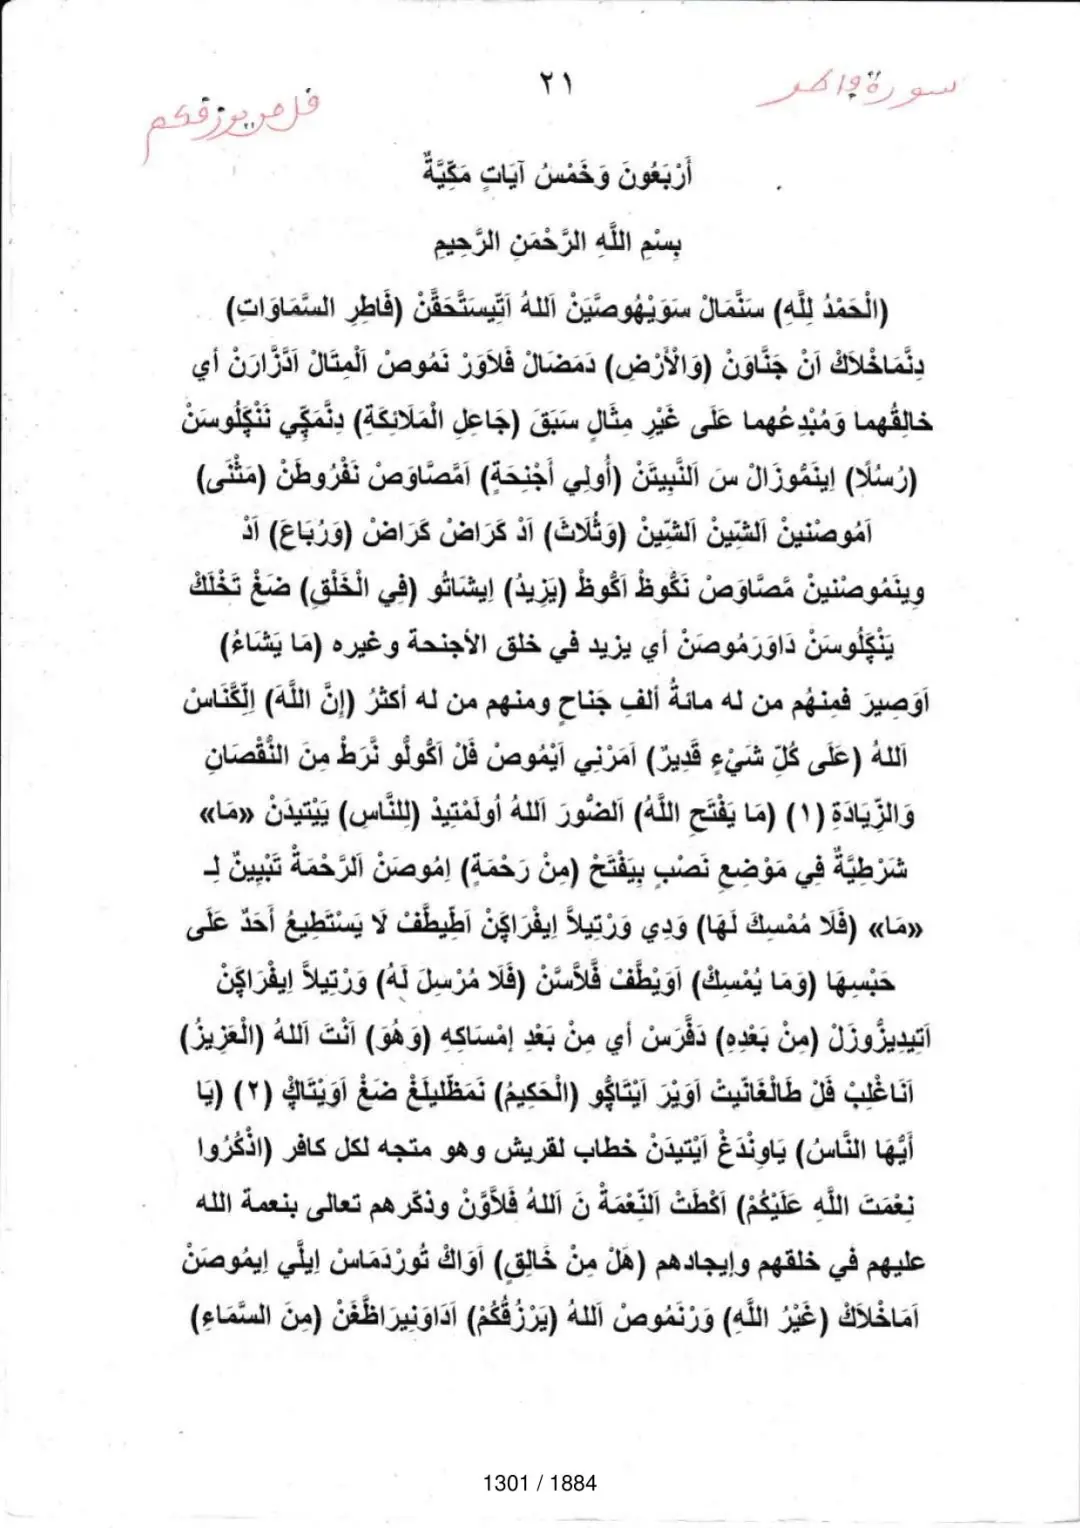 سورة فاطر
٢١
قل من يرزقكم
أَرْبَعُونَ وَخَمْسُ آيَاتٍ مَكِّيَّةٌ
بِسْمِ اللَّهِ الرَّحْمَنِ الرَّحِيمِ
(الْحَمْدُ لِلَّهِ) سَنَّمَالْ سَوَيْهُوصَّيَنْ اَللهُ اَتِّيسَتَّحَقَّنْ (فَاطِرِ السَّمَاوَاتِ)
دِنَّمَاخْلَاكْ اَنْ جَنَّاوَنْ (وَالْأَرْضِ) دَمَضَالْ فَلَاوَرْ نَمُوصْ اَلْمِتَالْ اَدَّزَّارَنْ أي
خالِقُهما وَمُبْدِعُهما عَلَى غَيْرِ مِثَالٍ سَبَقَ (جَاعِلِ الْمَلَائِكَةِ) دِنَّمَكِّي نَنْكَلُوسَنْ
(رُسُلًا) اِينَمُّوزَالْ سَ اَلنَّبِيتَنْ (أُولِي أَجْنِحَةٍ) اَمَّصَّاوَصْ نَفْرُوطَنْ (مَثْنَى)
اَمُوصْنينْ اَلشّينْ اَلشّينْ (وَثُلَاثَ) اَدْ كَرَاضْ كَرَاضْ (وَرُبَاعَ) اَدْ
وِينَمُوصْنينْ مَّصَّاوَصْ نَكُّوظْ اَكُّوظْ (يَزِيدُ) اِيشَاتُو (فِي الْخَلْقِ) ضَغْ تَخْلَكْ
يَنْكَلُوسَنْ دَاوَرَمُوصَنْ أي يزيد في خلق الأجنحة وغيره (مَا يَشَاءُ)
اَوَصِيرَ فمِنهُم من له مائةُ ألفِ جَناحٍ ومنهم من له أكثرُ (إِنَّ اللَّهَ) اِلكَّنَاسْ
اَللهُ (عَلَى كُلِّ شَيْءٍ قَدِيرٌ) اَمَرْنِي اَيْمُوصْ فَلْ اَكُولُو نَّرَطْ مِنَ النُّقْصَانِ
وَالزِّيَادَةِ (١) (مَا يَفْتَحِ اللَّهُ) اَلضُّورَ اَللهُ أُولَمْتِيدْ (لِلنَّاسِ) يَيْتِيدَنْ «مَا»
شَرْطِيَّةٌ فِي مَوْضِعِ نَصْبٍ بِيَفْتَحْ (مِنْ رَحْمَةٍ) اِمُوصَنْ اَلرَّحْمَةْ تَبْيِينٌ لِـ
«مَا» (فَلَا مُمْسِكَ لَهَا) وَدِي وَرْتِيلاَّ اِيفْرَاكَنْ اَطِيطَّفْ لَا يَسْتَطِيعُ أَحَدٌ عَلَى
حَبْسِهَا (وَمَا يُمْسِكْ) اَوَيْطَّفْ فَّلاَّسَنْ (فَلَا مُرْسِلَ لَهُ) وَرْتِيلاَّ اِيفْرَاكَنْ
اَتِيدِيزُّوزَلْ (مِنْ بَعْدِهِ) دَفَّرَسْ أي مِنْ بَعْدِ إمْساكِهِ (وَهُوَ) اَنْتَ اَللهُ (الْعَزِيزُ)
اَنَاغْلِبْ فَلْ طَالْغَانِيتْ اَوَيْرَ اَيْتَاكُو (الْحَكِيمُ) نَمَظِّليلَغْ ضَغْ اَوَيْتَاكْ (٢) (يَا
أَيُّهَا النَّاسُ) يَاوِنْدَغْ اَيْتِيدَنْ خطاب لقريش وهو متجه لكل كافر (اذْكُرُوا
نِعْمَتَ اللَّهِ عَلَيْكُمْ) اَكْطَتْ اَلنِّعْمَةْ نَ اَللهُ فَلاَّوَنْ وذكّرهم تعالى بنعمة الله
عليهم في خلقهم وإيجادهم (هَلْ مِنْ خَالِقٍ) اَوَاكْ تُورْدَمَاسْ اِيلَّي اِيمُوصَنْ
اَمَاخْلَاكْ (غَيْرُ اللَّهِ) وَرْنَمُوصْ اَللهُ (يَرْزُقُكُمْ) اَدَاوَنِيرَاظَّغَنْ (مِنَ السَّمَاءِ)
1301 / 1884